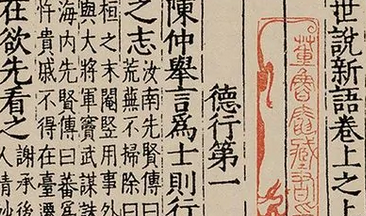 世說新語卷上之上
德行第一
陳仲舉言為士則行
之志
汝南先賢傳曰
荒蕪不掃除曰
桓之末閹豎用事外
與大將軍竇武謀誅
海內先賢傳曰蕃為
忤貴戚不得在臺遷
在欲先看之
謝承後